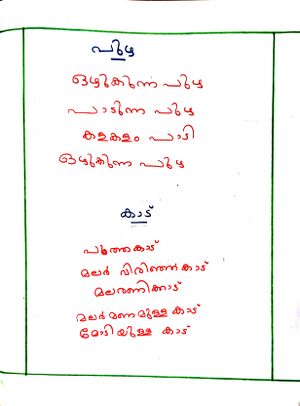 പുഴ
ഒഴുകുന്ന പുഴ
പാടുന്ന പുഴ
കളകളം പാടി
ഒഴുകുന്ന പുഴ
കാട്
പൂത്തകാട്
മലർ വിരിഞ്ഞകാട്
മലരണിക്കാട്
മലർമണമുള്ള കാട്
മോടിയുള്ള കാട്